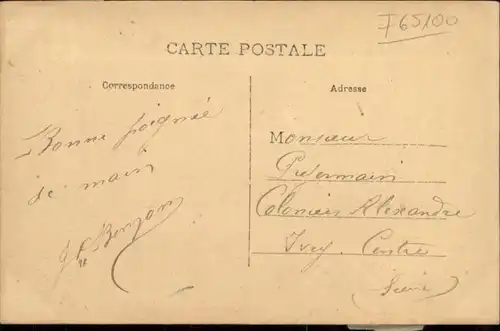 F65100
CARTE POSTALE
Correspondance
Adresse
Bonne poignée
de main
Monsieur
Alexandre
Ivry. Centre
(Seine)